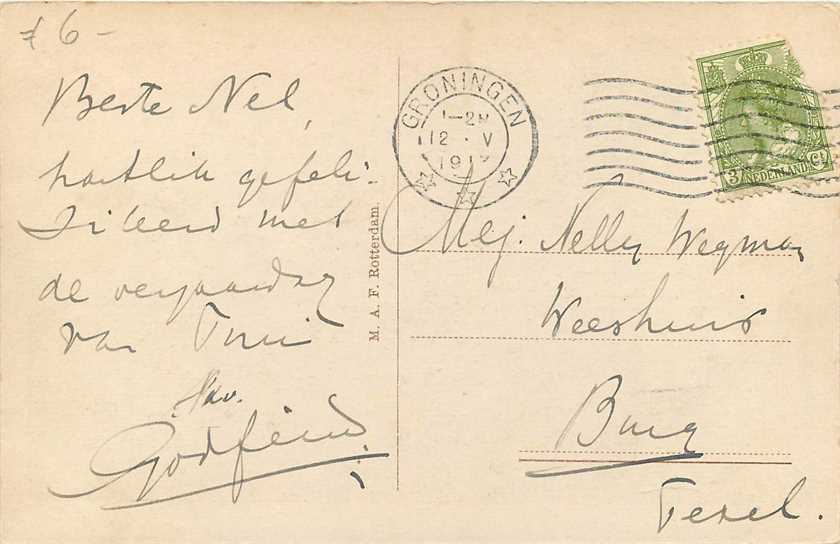 f 6 -
Beste Nel,
hartelik gefeli-
siteerd met
de verjaardag
van
Godfried.
M. A. F. Rotterdam.
GRONINGEN
1-2N
12 · V
191
3 Ct
NEDERLAND
Mej. Nelly Wegman
Weeshuis
Burg
Texel.